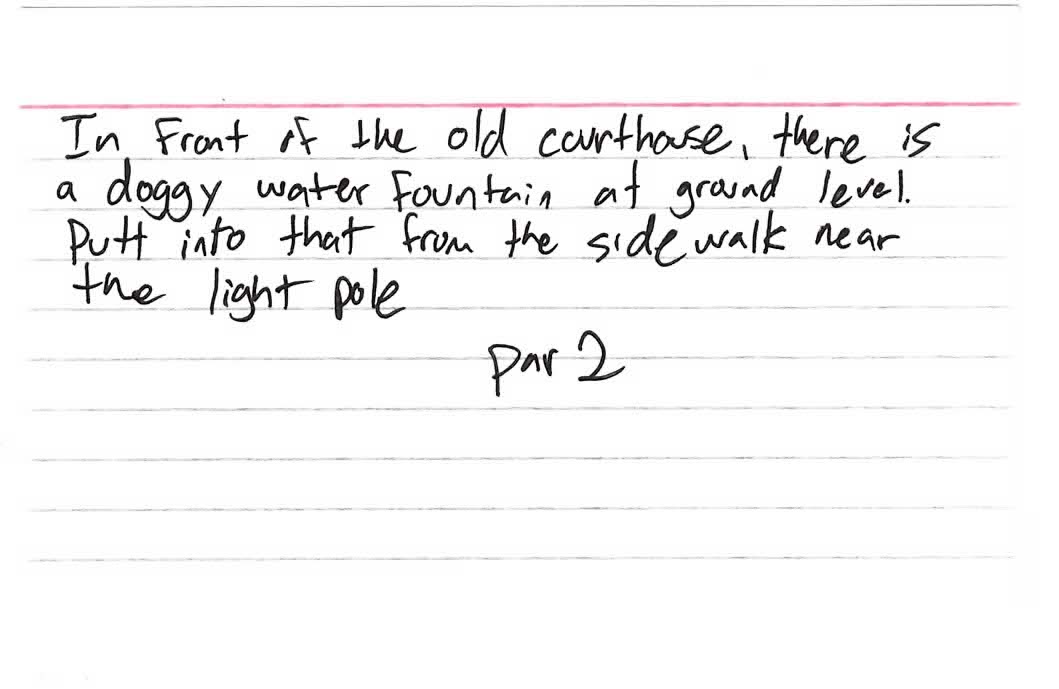 In Front of the old courthouse, there is
a doggy water Fountain at ground level.
Putt into that from the sidewalk near
the light pole
par 2